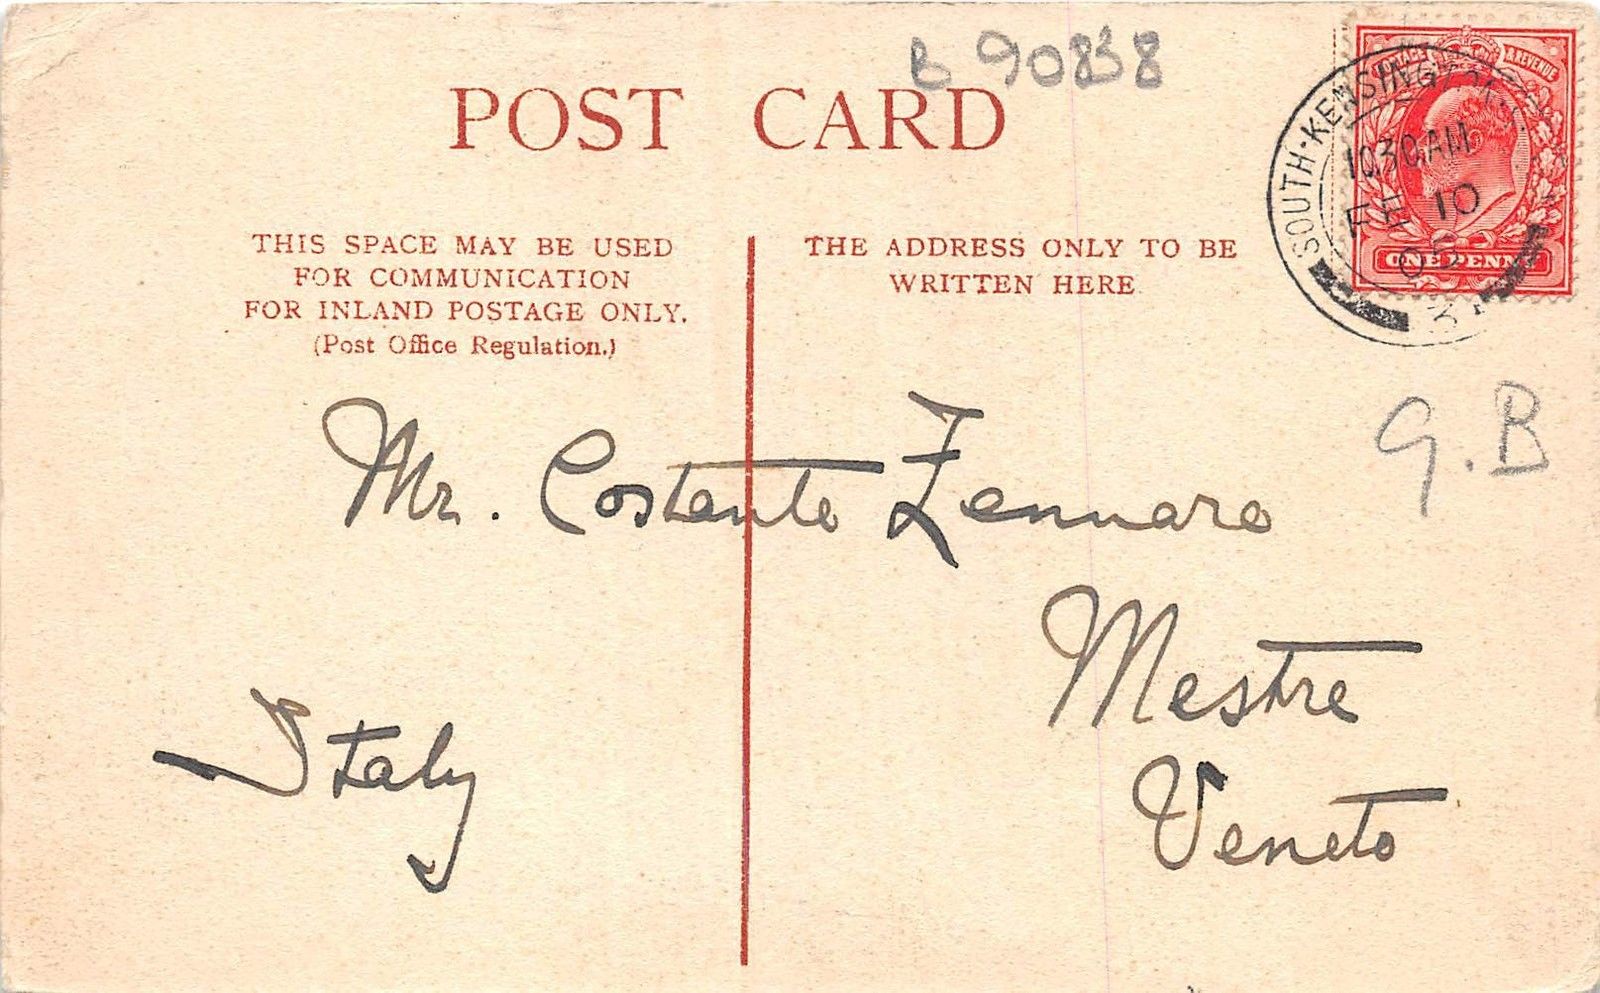 B 90838
POST CARD
THIS SPACE MAY BE USED
FOR COMMUNICATION
FOR INLAND POSTAGE ONLY.
(Post Office Regulation.)
THE ADDRESS ONLY TO BE
WRITTEN HERE
POSTAGE & REVENUE
ONE PENNY
SOUTH·KENSINGTON
10.30AM
10
05
G.B
Mr. Costante Zennaro
Mestre
Veneto
Italy